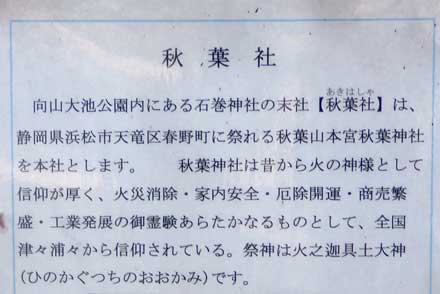 秋葉社
あきはしゃ
向山大池公園内にある石巻神社の末社【秋葉社】は、
静岡県浜松市天竜区春野町に祭れる秋葉山本宮秋葉神社
を本社とします。　　秋葉神社は昔から火の神様として
信仰が厚く、火災消除・家内安全・厄除開運・商売繁
盛・工業発展の御霊験あらたかなるものとして、全国
津々浦々から信仰されている。祭神は火之迦具土大神
(ひのかぐつちのおおかみ)です。